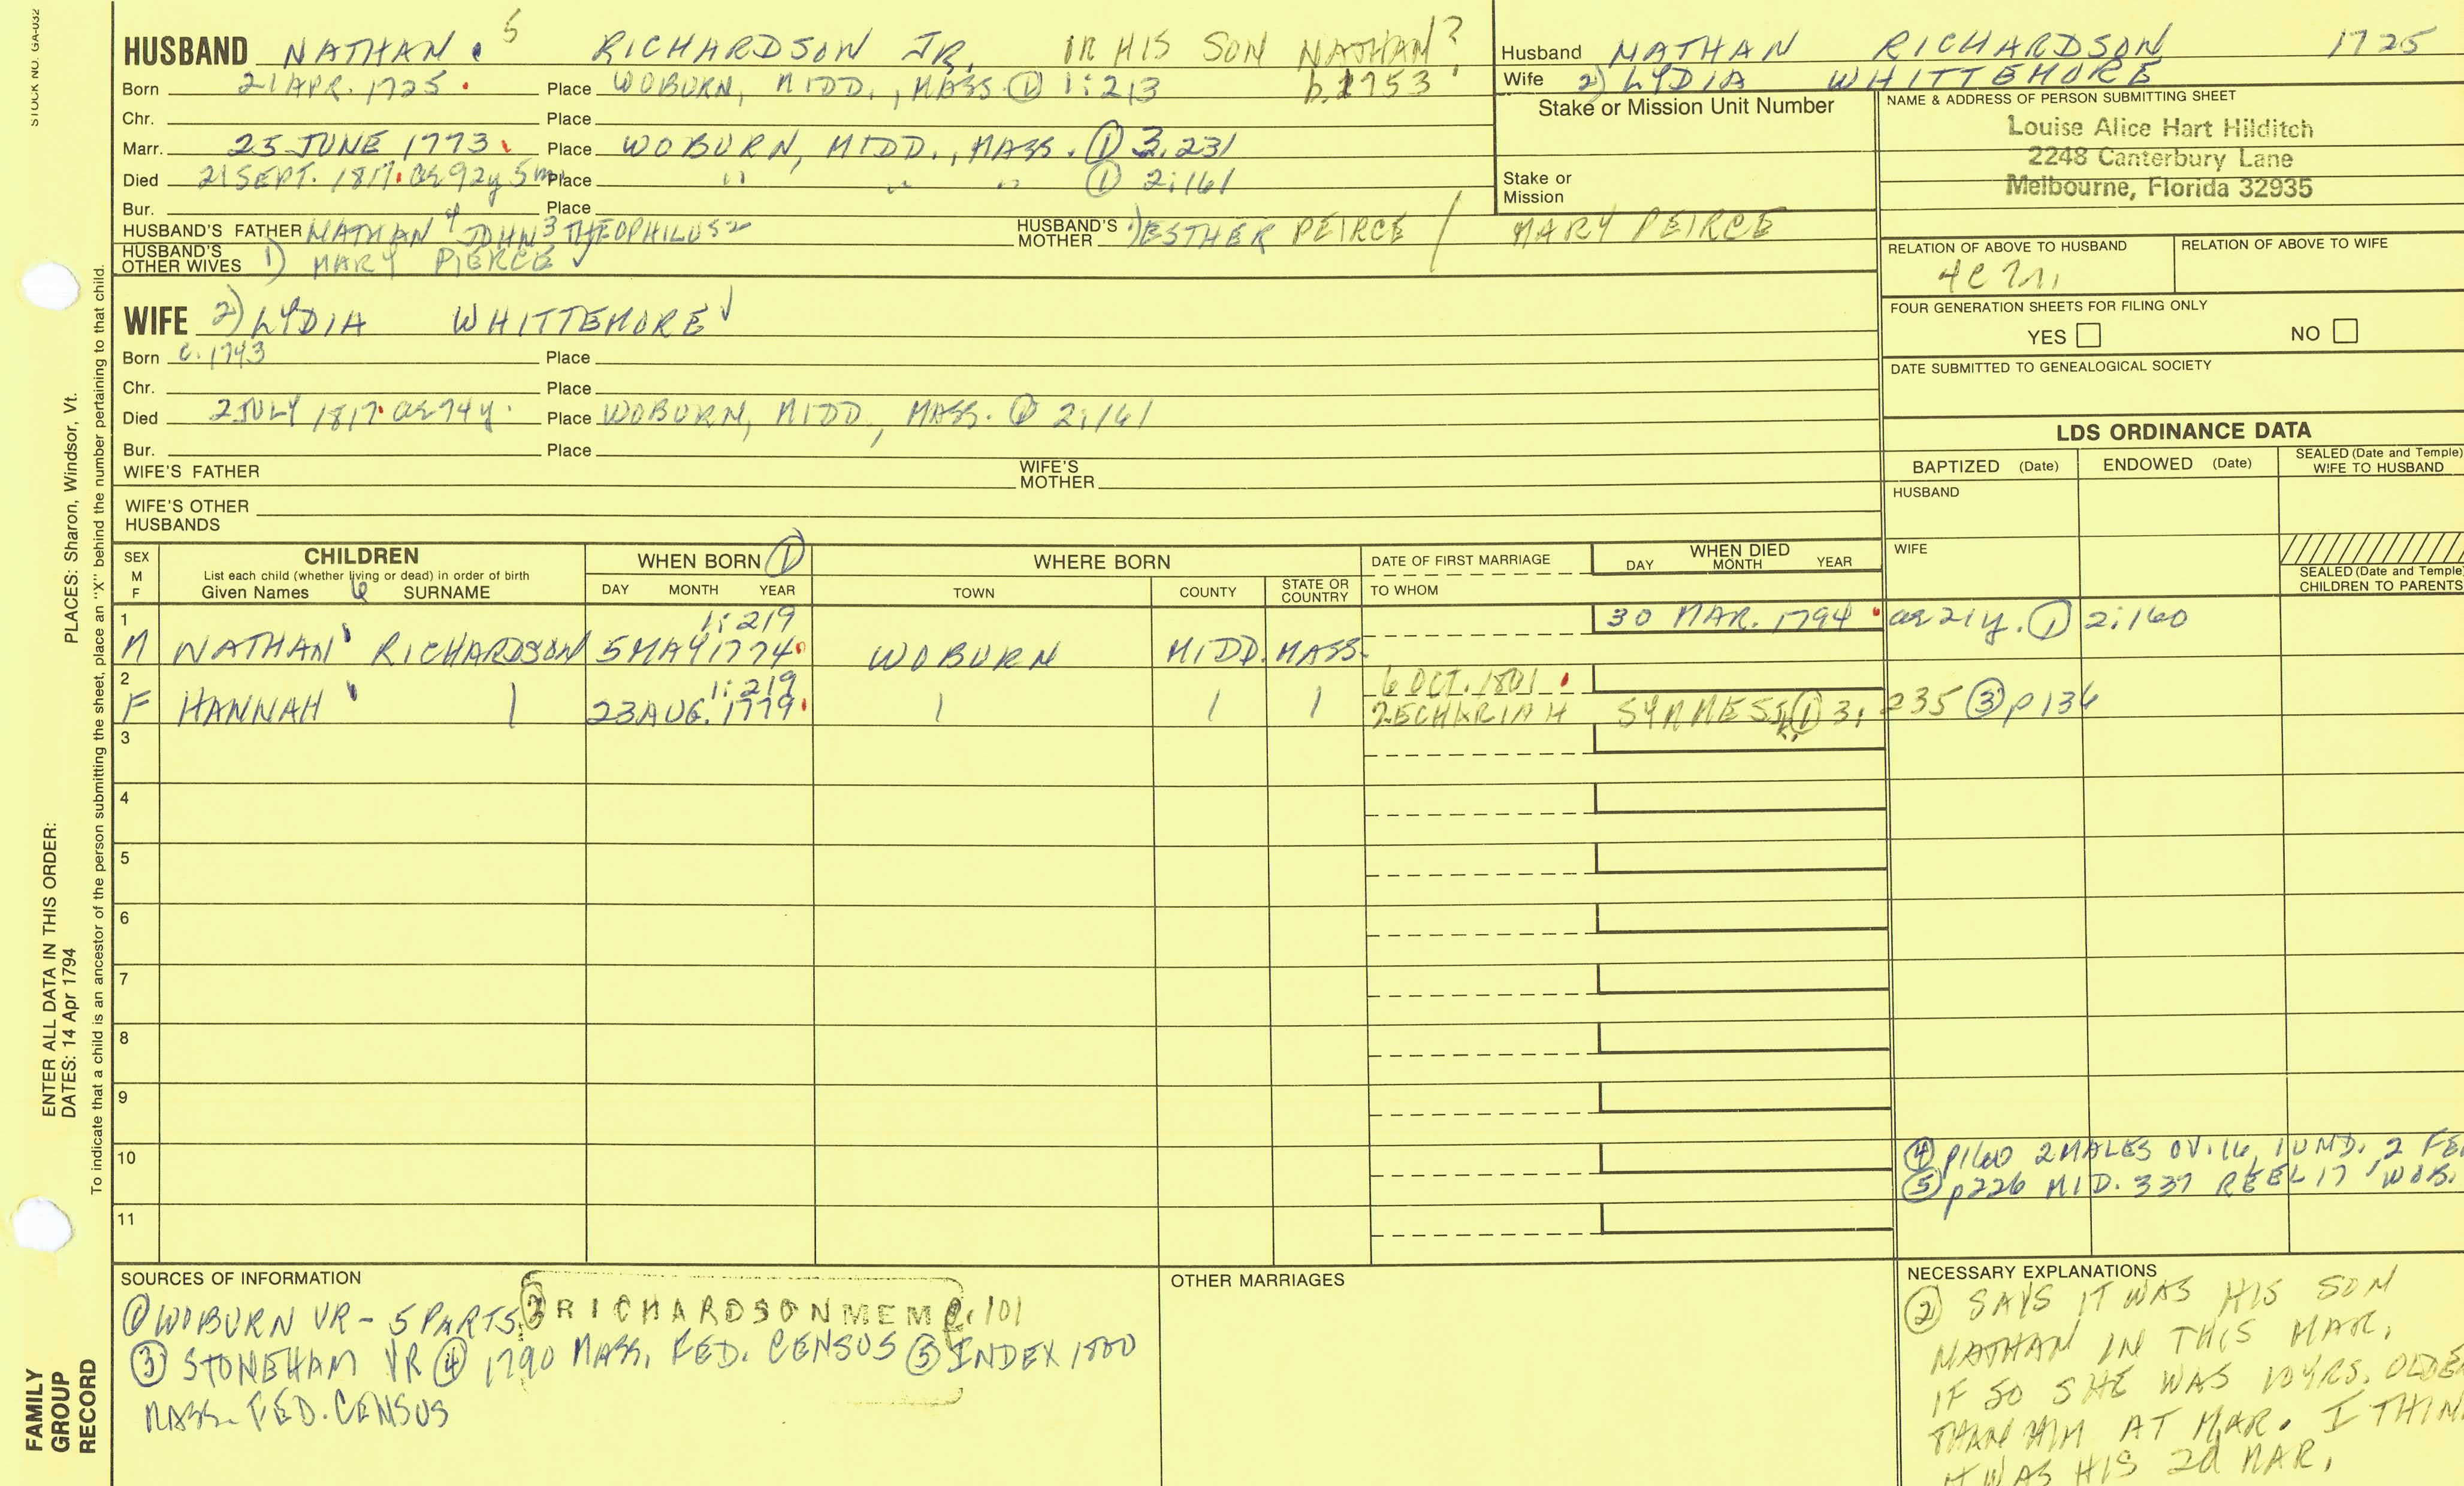 STOCK NO. GA-032
HUSBAND NATHAN 5 RICHARDSON JR. OR HIS SON NATHAN?
Born 21 APR. 1725 Place WOBURN, MIDD., MASS. ① 1:213 b. 1753
Chr. Place
Marr. 25 JUNE 1773 Place WOBURN, MIDD., MASS. ① 3.231
Died 21 SEPT. 1817 ae 92y 5m Place " " " ① 2:161
Bur. Place
HUSBAND'S FATHER NATHAN 4 JOHN 3 THEOPHILUS 2 HUSBAND'S MOTHER 1) ESTHER PEIRCE / MARY PEIRCE
HUSBAND'S OTHER WIVES 1) MARY PIERCE
Husband NATHAN RICHARDSON 1725
Wife 2) LYDIA WHITTEMORE
Stake or Mission Unit Number
Stake or Mission
NAME & ADDRESS OF PERSON SUBMITTING SHEET
Louise Alice Hart Hilditch
2248 Canterbury Lane
Melbourne, Florida 32935
RELATION OF ABOVE TO HUSBAND RELATION OF ABOVE TO WIFE
FOUR GENERATION SHEETS FOR FILING ONLY
YES NO
DATE SUBMITTED TO GENEALOGICAL SOCIETY
WIFE 2) LYDIA WHITTEMORE
Born c. 1743 Place
Chr. Place
Died 2 JULY 1817 ae 74y. Place WOBURN, MIDD., MASS. ① 2:161
Bur. Place
WIFE'S FATHER WIFE'S MOTHER
WIFE'S OTHER HUSBANDS
LDS ORDINANCE DATA
BAPTIZED (Date) ENDOWED (Date) SEALED (Date and Temple) WIFE TO HUSBAND
HUSBAND
WIFE
SEALED (Date and Temple CHILDREN TO PARENTS
SEX M F CHILDREN WHEN BORN ① WHERE BORN DATE OF FIRST MARRIAGE WHEN DIED
List each child (whether living or dead) in order of birth
Given Names 6 SURNAME DAY MONTH YEAR TOWN COUNTY STATE OR COUNTRY TO WHOM DAY MONTH YEAR
1 1:219 30 MAR. 1794 ae 21y. ① 2:160
M NATHAN RICHARDSON 5 MAY 1774 WOBURN MIDD. MASS.
2 1:219 6 OCT. 1801
F HANNAH | 23 AUG. 1779 | | | ZECHARIAH SYMMES Jr. ① 3: 235 ③ p136
3
4
5
6
7
8
9
10 ④ p160 2 MALES OV. 16, 1 UND. 2 FE
⑤ p226 MID. 337 REEL 17 WOB.
11
SOURCES OF INFORMATION
① WOBURN VR - 5 PARTS ② RICHARDSON MEM p. 101
③ STONEHAM VR ④ 1790 MASS. FED. CENSUS ⑤ INDEX 1800
MASS. FED. CENSUS
OTHER MARRIAGES
NECESSARY EXPLANATIONS
② SAYS IT WAS HIS SON
NATHAN IN THIS MAR.
IF SO SHE WAS 10 YRS. OLDE
THAN HIM AT MAR. I THIN
IT WAS HIS 2d MAR.
PLACES: Sharon, Windsor, Vt.
ENTER ALL DATA IN THIS ORDER:
DATES: 14 Apr 1794
To indicate that a child is an ancestor of the person submitting the sheet, place an "X" behind the number pertaining to that child.
FAMILY
GROUP
RECORD